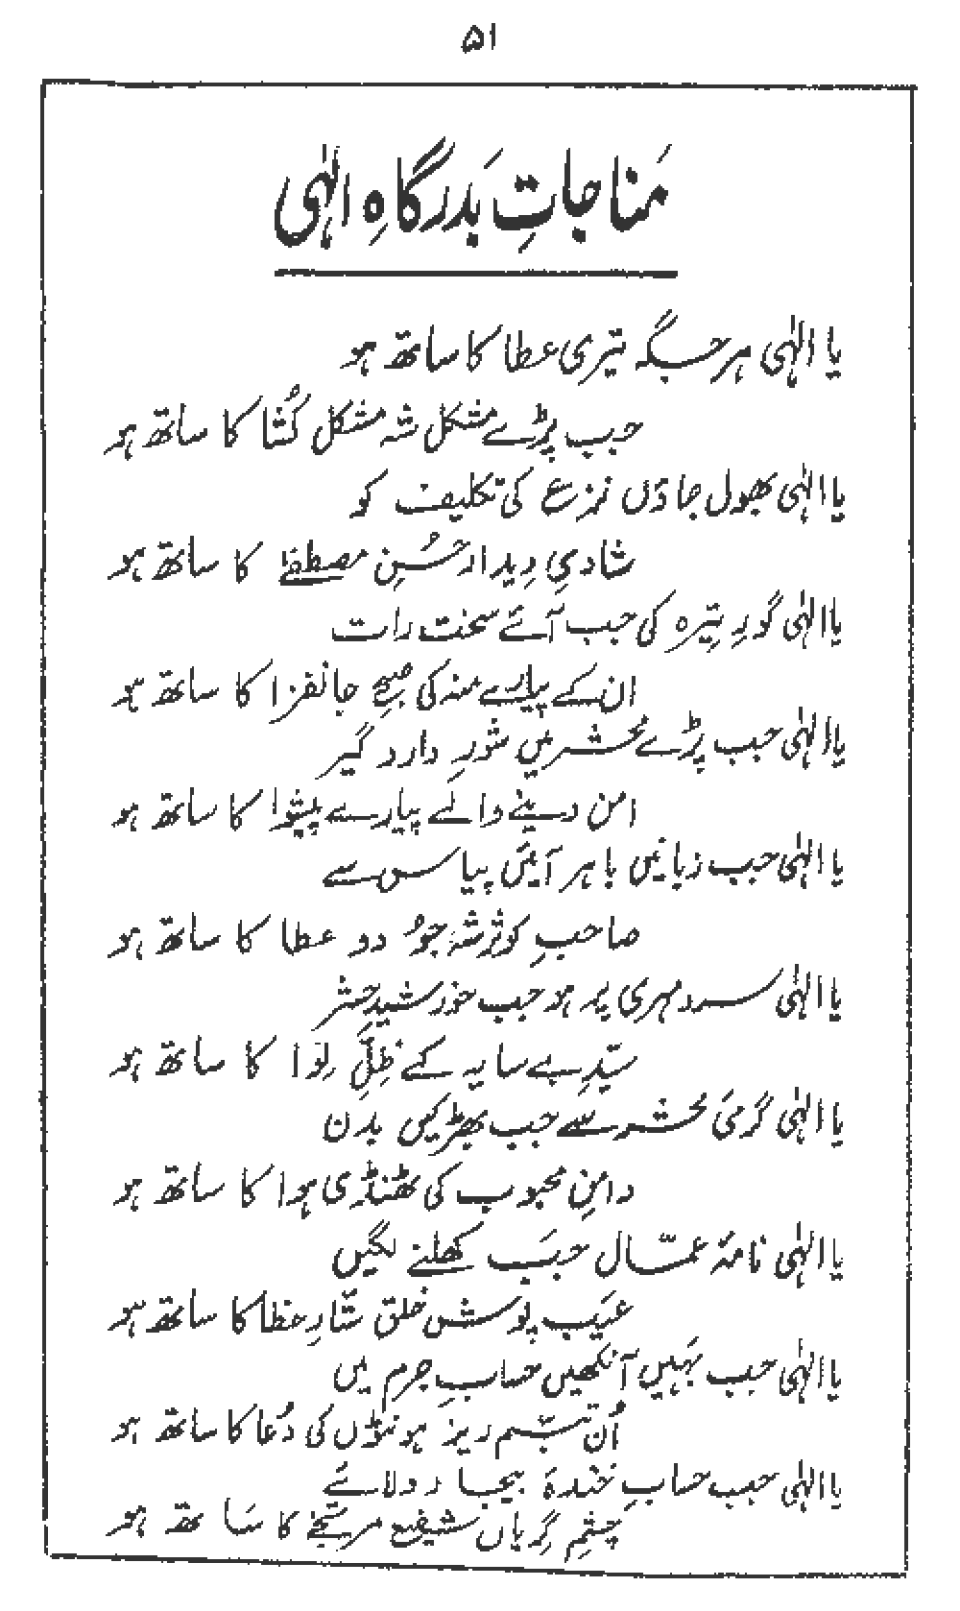 ۵۱
مَناجاتِ بَدرگاہِ الٰہی
یا الٰہی ہر جگہ تیری عطا کا ساتھ ہو
جب پڑے مشکل شہ مشکل کُشا کا ساتھ ہو
یا الٰہی بھول جاؤں نزع کی تکلیف کو
شادیِ دِیدار حُسنِ مصطفٰے کا ساتھ ہو
یا الٰہی گورِ تیرہ کی جب آئے سخت رات
ان کے پیارے منہ کی صبحِ جانفزا کا ساتھ ہو
یا الٰہی جب پڑے محشر میں شورِ دار و گیر
امن دینے والے پیارے پیشوا کا ساتھ ہو
یا الٰہی جب زبانیں باہر آئیں پیاس سے
صاحبِ کوثر شہِ جوُد و عطا کا ساتھ ہو
یا الٰہی سرد مہری پہ ہو جب خورشیدِ حشر
سیّدِ بے سایہ کے ظِلِّ لِوَا کا ساتھ ہو
یا الٰہی گرمیَ محشر سے جب بھڑکیں بدن
دامنِ محبوب کی ٹھنڈی ہوا کا ساتھ ہو
یا الٰہی نامۂ عمّال جَب کھلنے لگیں
عیَب پوش خلق ستّارِ خطا کا ساتھ ہو
یا الٰہی جب بَہیں آنکھیں حسابِ جرم میں
اُن تبّسم ریز ہونٹوں کی دُعا کا ساتھ ہو
یا الٰہی جب حسابِ خندہَ بیجا رولائے
چشمِ گِریاں شفیع مرتجٰے کا سَا تھ ہو